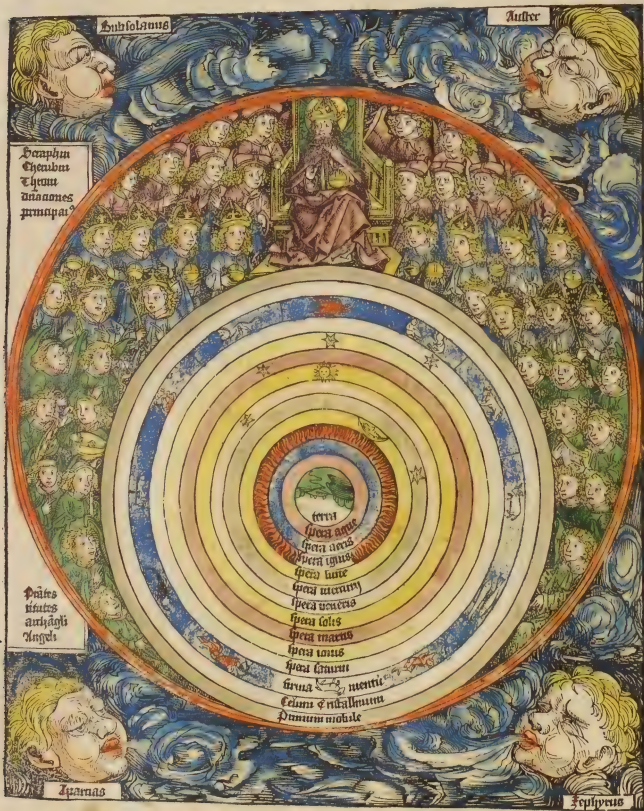 Subsolanus
Auster
Seraphin
Cherubin
Throni
dñaciones
principat⁹
terra
spera aque
spera aeris
spera ignis
spera lune
spera mercurij
spera veneris
spera solis
spera martis
spera iouis
spera saturni
firma mentũ
Celum Cristallinum
Primum mobile
Ptātes
virtutes
archāgli
Angeli
Aparcias
Zephyrus